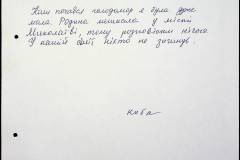 Коли почався голодомор я була дуже
мала. Родина мешкала у місті
Миколаїві, тому розповісти нічого
У нашій сім'ї ніхто не загинув.